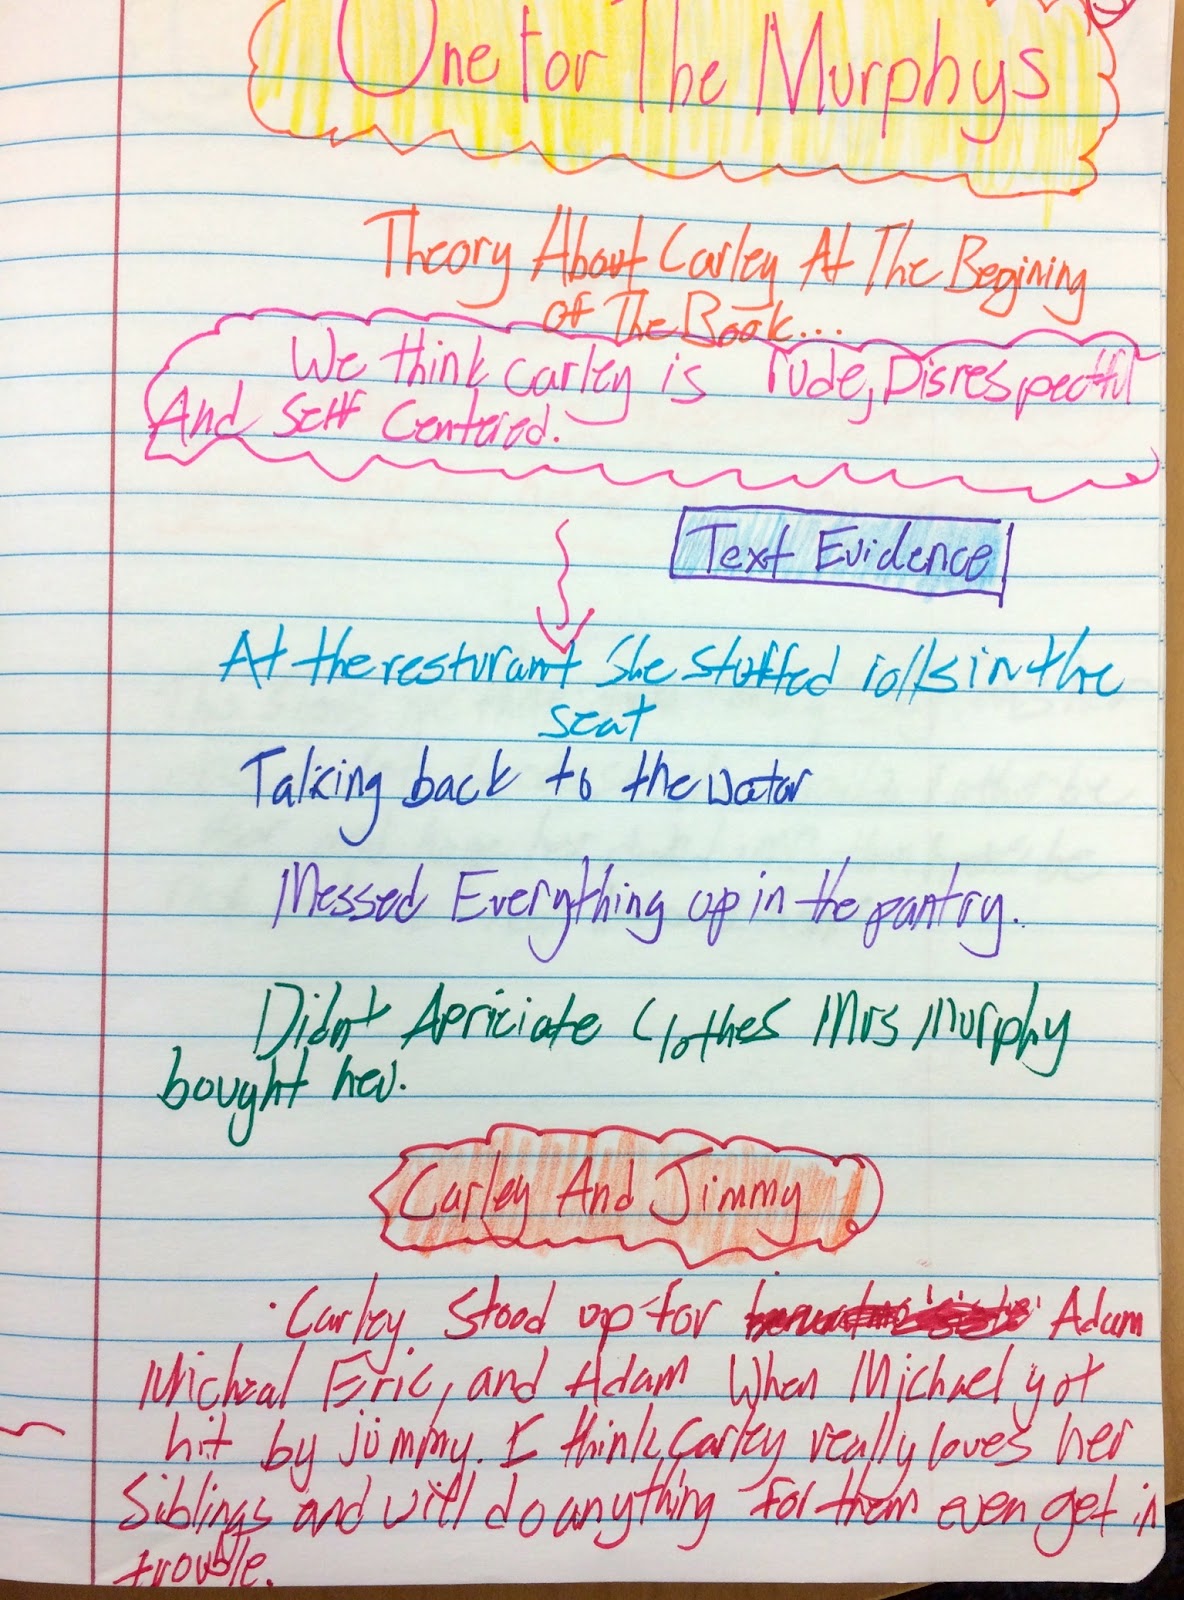 One for The Murphys
Theory About Carley At The Begining
of The Book...
We think carley is rude, Disrespectful
And Self Centered.
Text Evidence
At the resturant She stuffed rolls in the
seat
Talking back to the watar
Messed Everything up in the pantry.
Didnt Apriciate Clothes Mrs Murphy
bought her.
Carley And Jimmy
Carley Stood up for Adam
Micheal Eric, and Adam When Michael got
hit by jimmy. I think Carley really loves her
Siblings and will do anything for them even get in
trouble.